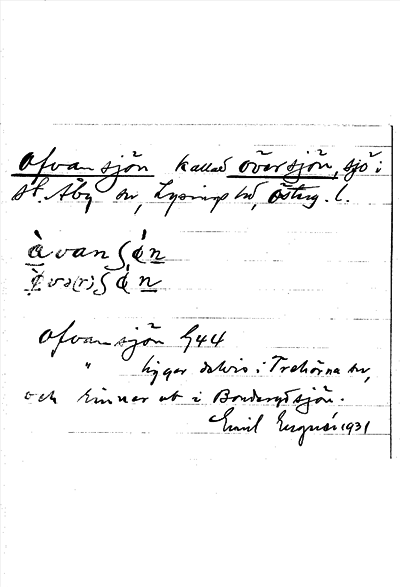 Ofvansjön kallad översjön, sjö i
st. Åby sn, Lysings hd, Österg. l.
ὰvanʃǿn
ǿvə(r)ʃǿn
Ofvansjön G44
" ligger delvis i Trehörna sn,
och rinner ut i Bondernydsjön.
Emil 1931